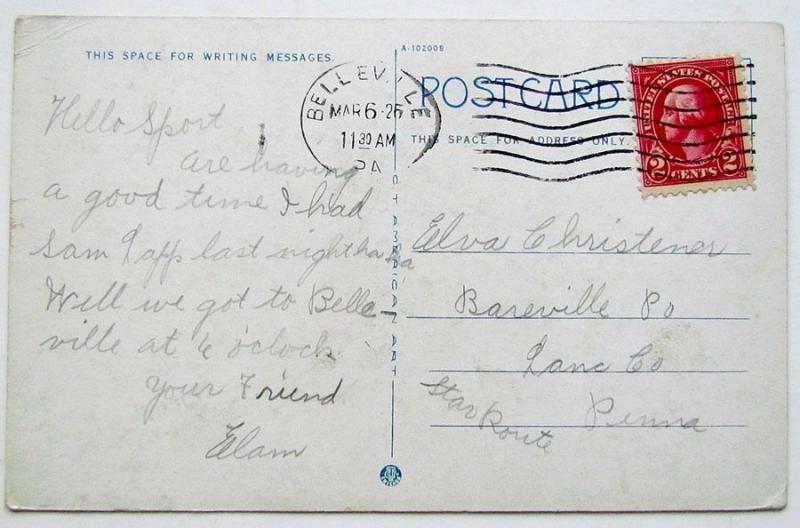 THIS SPACE FOR WRITING MESSAGES.
A-102008
POST CARD
THIS SPACE FOR ADDRESS ONLY.
BELLEVILLE
MAR 6-26
11 30 AM
PA
UNITED STATES POSTAGE
2 CENTS 2
Hello Sport
are having
a good time I had
Sam Lapp last night ha ha
Well we got to Belle-
ville at 6 o'clock
your Friend
Elam
Elva Christener
Bareville Po
Lanc Co
Star Route
Penna